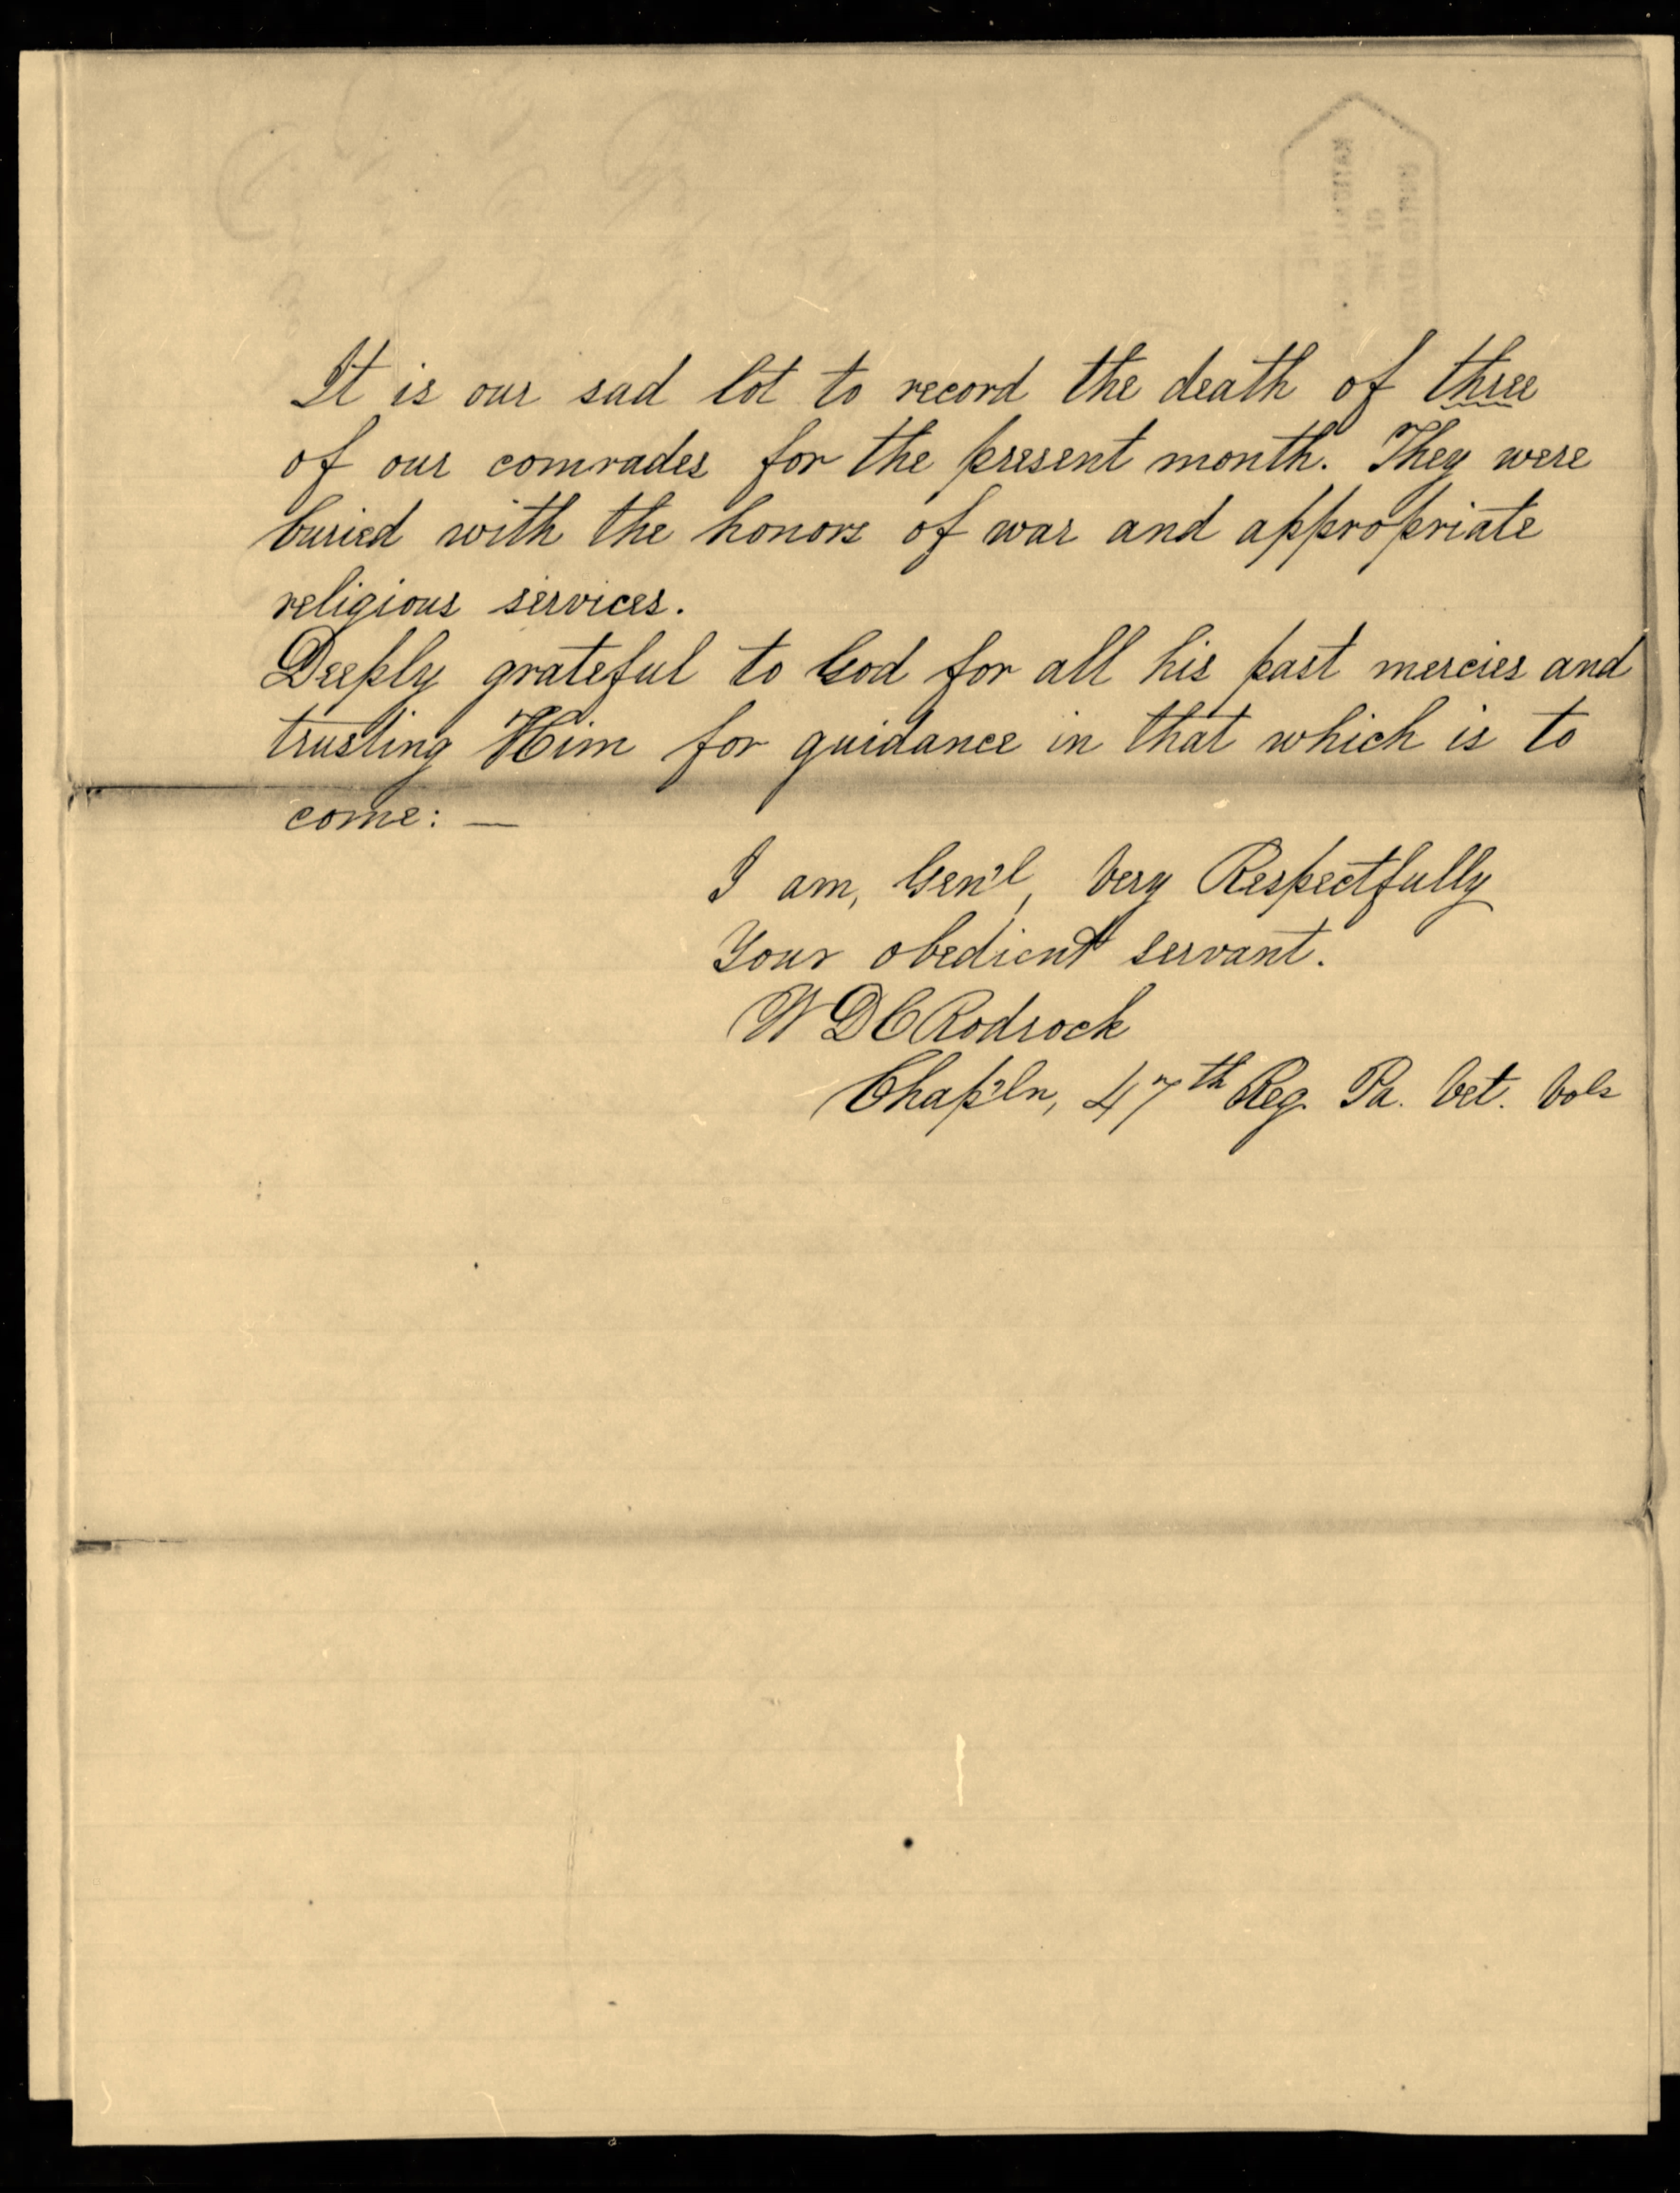 It is our sad lot to record the death of three
of our comrades for the present month. They were
buried with the honors of war and appropriate
religious services.
Deeply grateful to God for all his past mercies and
trusting Him for guidance in that which is to
come: —
I am, Gen'l, Very Respectfully
Your obedient servant.
W D C Rodrock
Chap'ln, 47th Reg. Pa. Vet. Vols